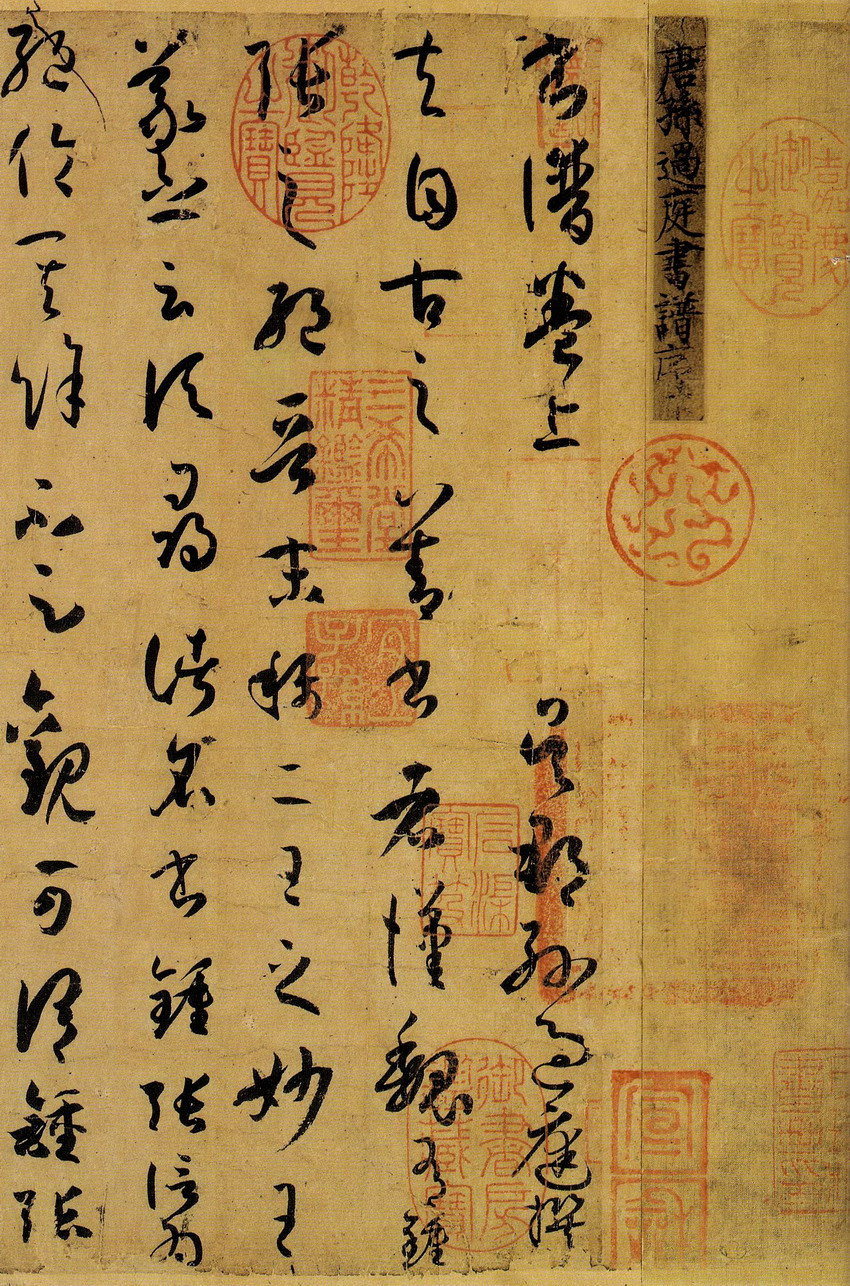 唐孫過庭書譜序
書譜卷上 吳郡孫過庭撰
夫自古之善書者漢魏有鍾
張之絕晉末稱二王之妙王
羲之云頃尋諸名書鍾張信為
絕倫其餘不足觀可謂鍾張
嘉慶御覽之寶
乾隆御覽之寶
三希堂精鑑璽
宜子孫
石渠寶笈
御書房鑑藏寶
宣和